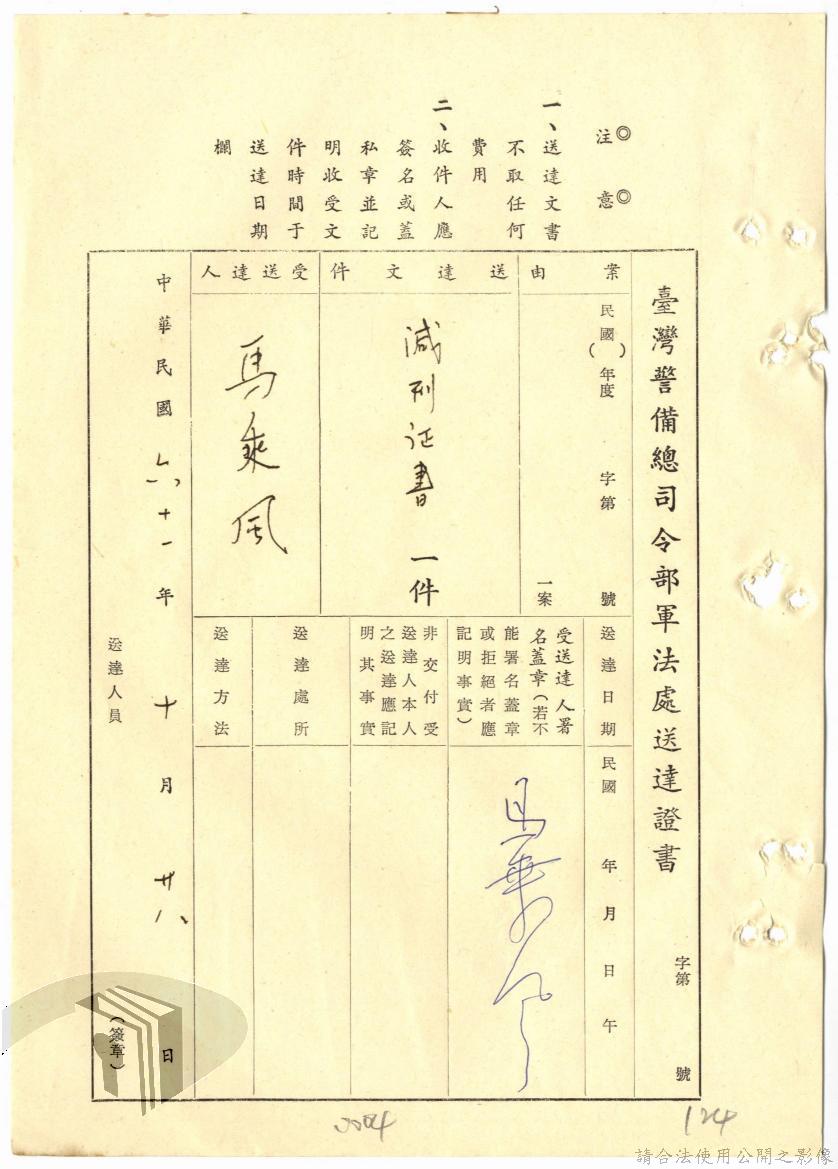 ◎注意◎
一、送達文書
不取任何
費用
二、收件人應
簽名或蓋
私章並記
明收受文
件時間于
送達日期
欄
臺灣警備總司令部軍法處送達證書
字第 號
案由
民國( )年度 字第 號
一案
送達文件
減刑证書 一件
受送達人
馬乘風
送達日期
民國 年 月 日 午
受送達人署
名蓋章(若不
能署名蓋章
或拒絕者應
記明事實)
馬乘風
非交付受
送達人本人
之送達應記
明其事實
送達處所
送達方法
中華民國六十一年十月廿八日
送達人員 (簽章)
124
請合法使用公開之影像